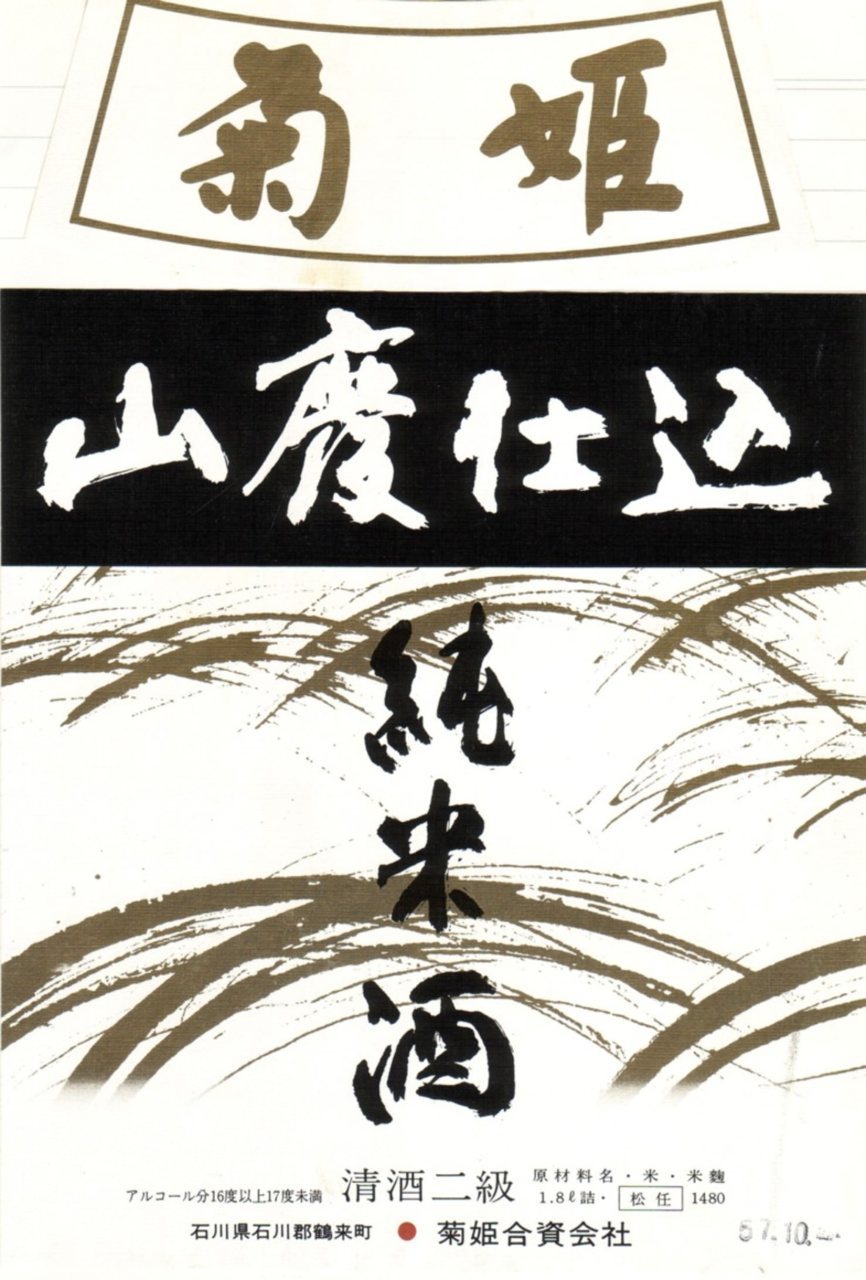 菊姫
山廃仕込
純米酒
アルコール分16度以上17度未満
清酒二級
原材料名・米・米麹
1.8ℓ詰・ 松任 1480
石川県石川郡鶴来町 ● 菊姫合資会社
57.10.